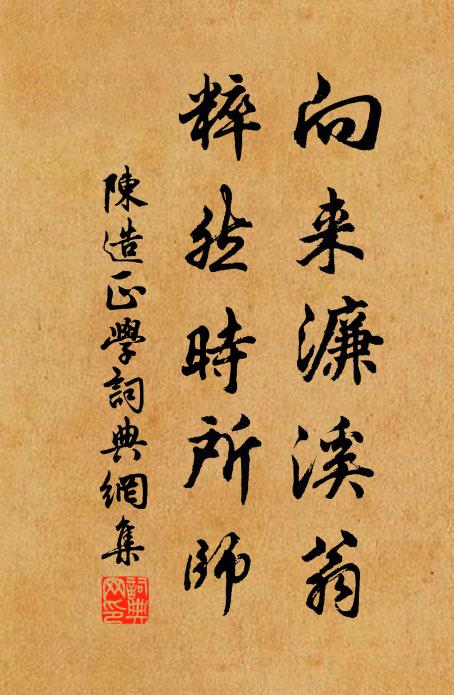 向来濂溪翁
粹然時所師
陳造正學詞典網集
詞典网印